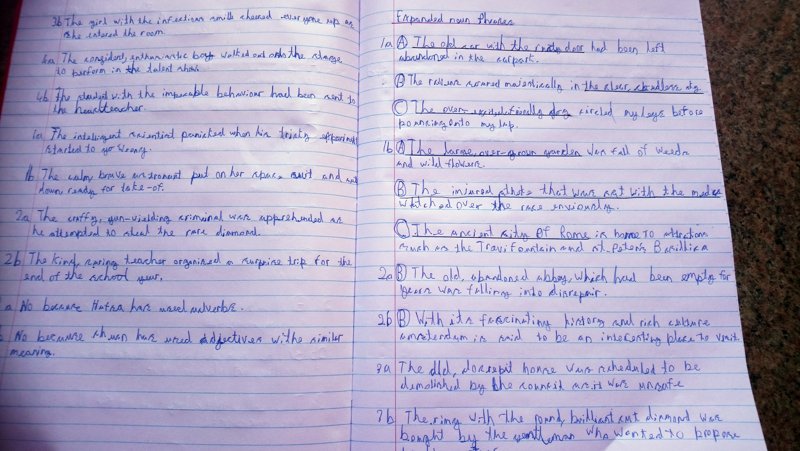 3b The girl with the infectious smile cheered everyone up as
she entered the room.
4a The confident, enthusiastic boy walked out onto the stage
to perform in the talent show.
4b The student with the impecable behaviour had been sent to
the headteacher.
1a The intelligent scientist panicked when his tricky
started to go wrong.
1b The calm brave astronaut put on her space suit and
down ready for take-of.
2a The crafty, gun-wielding criminal was apprehended as
he attempted to steal the rare diamond.
2b The kind, caring teacher organised a surprise trip for the
end of the school year.
a No because has used adverbs.
No because has used adjectives with similar
meaning.
Expanded noun Phrases
1a A The old car with the door had been left
abandoned in the carpark.
B The soared majestically in the clear, cloudless sky
C The over-excited dog circled my legs before
pouncing onto my lap.
1b A The large, over-grown garden was full of weeds
and wild flowers.
B The injured that was with the
watched over the race enviously.
C The ancient city of Rome is home to
such as the Trevi fountain and st. Peters
2a B The old, abandoned abbey, which had been empty for
years was falling into disrepair.
2b B With its fascinating history and rich culture
amsterdam is said to be an interesting place to visit
3a The old, house was scheduled to be
demolished by the council as it was unsafe
3b The ring with the round, brilliant cut diamond was
bought by the gentleman who wanted to propose